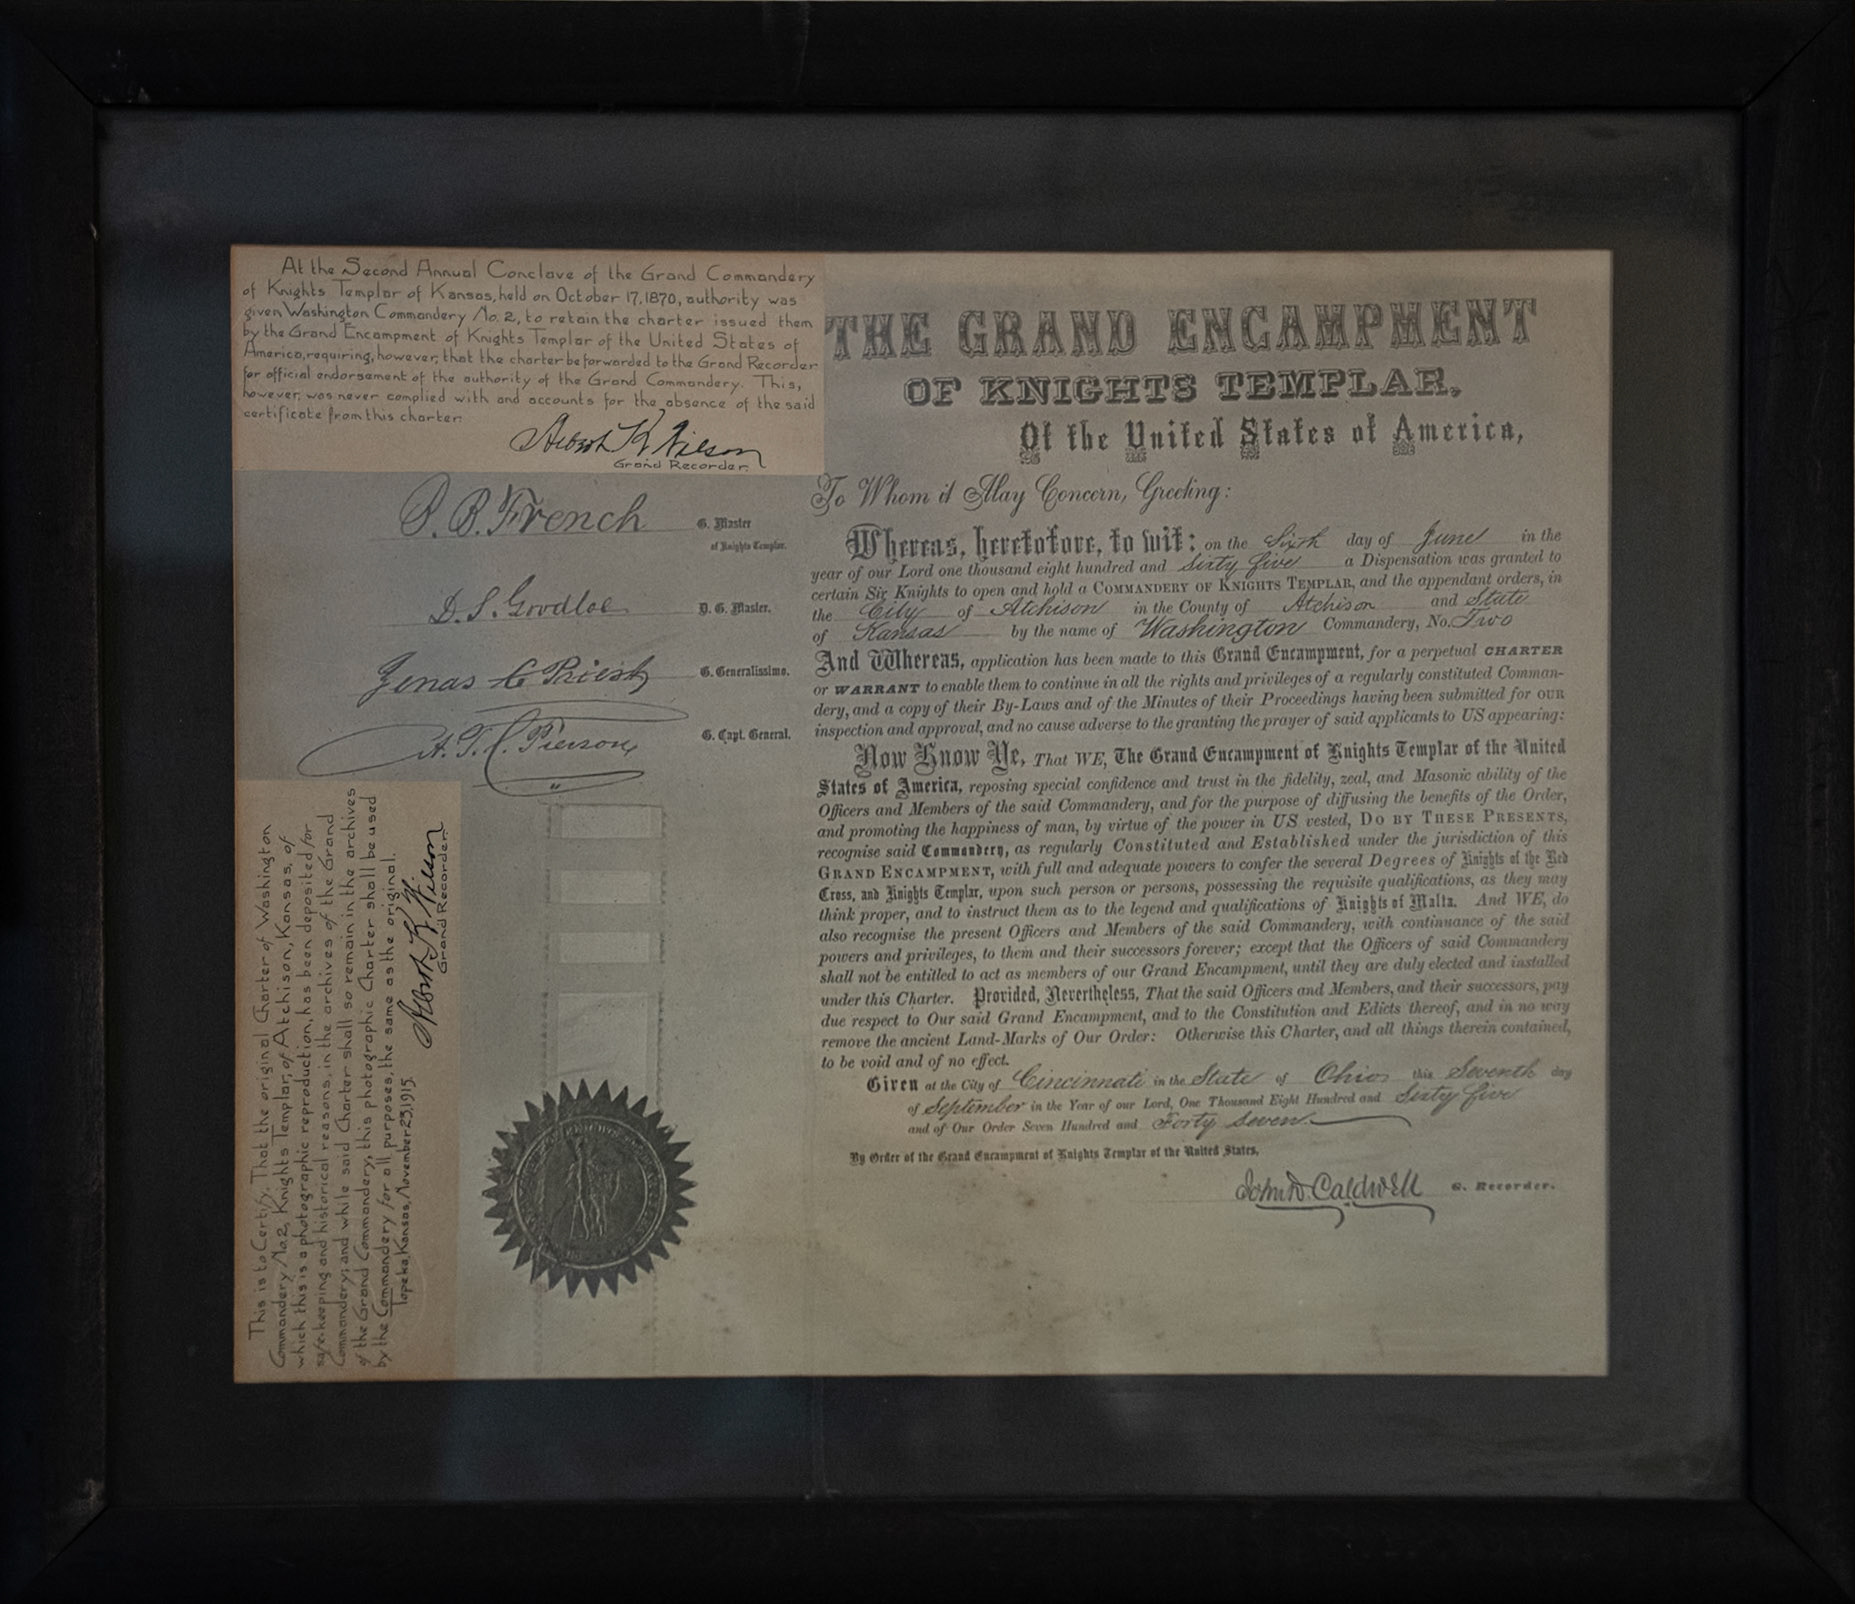 At the Second Annual Conclave of the Grand Commandery
of Knights Templar of Kansas, held on October 17, 1870, authority was
given Washington Commandery No. 2, to retain the charter issued them
by the Grand Encampment of Knights Templar of the United States of
America, requiring, however, that the charter be forwarded to the Grand Recorder
for official endorsement of the authority of the Grand Commandery. This,
however, was never complied with and accounts for the absence of the said
certificate from this charter.
Albert K. Wilson
Grand Recorder.
B. B. French G. Master
of Knights Templar.
D. S. Goodloe D. G. Master.
G. Generalissimo.
A. T. C. Pierson, G. Capt. General.
This is to Certify: That the original Charter of Washington
Commandery No. 2, Knights Templar, of Atchison, Kansas, of
which this is a photographic reproduction, has been deposited for
safe-keeping and historical reasons, in the archives of the Grand
Commandery; and while said Charter shall so remain in the archives
of the Grand Commandery, this photographic Charter shall be used
by the Commandery for all purposes, the same as the original.
Topeka, Kansas, November 23, 1915.
Albert K. Wilson
Grand Recorder.
THE GRAND ENCAMPMENT
OF KNIGHTS TEMPLAR,
Of the United States of America,
To Whom it May Concern, Greeting:
Whereas, heretofore, to wit: on the Sixth day of June in the
year of our Lord one thousand eight hundred and Sixty five a Dispensation was granted to
certain Sir Knights to open and hold a COMMANDERY OF KNIGHTS TEMPLAR, and the appendant orders, in
the City of Atchison in the County of Atchison and State
of Kansas by the name of Washington Commandery, No. Two
And Whereas, application has been made to this Grand Encampment, for a perpetual CHARTER
or WARRANT to enable them to continue in all the rights and privileges of a regularly constituted Comman-
dery, and a copy of their By-Laws and of the Minutes of their Proceedings having been submitted for OUR
inspection and approval, and no cause adverse to the granting the prayer of said applicants to US appearing:
Now Know Ye, That WE, The Grand Encampment of Knights Templar of the United
States of America, reposing special confidence and trust in the fidelity, zeal, and Masonic ability of the
Officers and Members of the said Commandery, and for the purpose of diffusing the benefits of the Order,
and promoting the happiness of man, by virtue of the power in US vested, DO BY THESE PRESENTS,
recognise said Commandery, as regularly Constituted and Established under the jurisdiction of this
GRAND ENCAMPMENT, with full and adequate powers to confer the several Degrees of Knights of the Red
Cross, and Knights Templar, upon such person or persons, possessing the requisite qualifications, as they may
think proper, and to instruct them as to the legend and qualifications of Knights of Malta. And WE, do
also recognise the present Officers and Members of the said Commandery, with continuance of the said
powers and privileges, to them and their successors forever; except that the Officers of said Commandery
shall not be entitled to act as members of our Grand Encampment, until they are duly elected and installed
under this Charter. Provided, Nevertheless, That the said Officers and Members, and their successors, pay
due respect to Our said Grand Encampment, and to the Constitution and Edicts thereof, and in no way
remove the ancient Land-Marks of Our Order: Otherwise this Charter, and all things therein contained,
to be void and of no effect.
Given at the City of Cincinnati in the State of Ohio this Seventh day
of September in the Year of our Lord, One Thousand Eight Hundred and Sixty five
and of Our Order Seven Hundred and Forty Seven.
By Order of the Grand Encampment of Knights Templar of the United States,
John D. Caldwell G. Recorder.